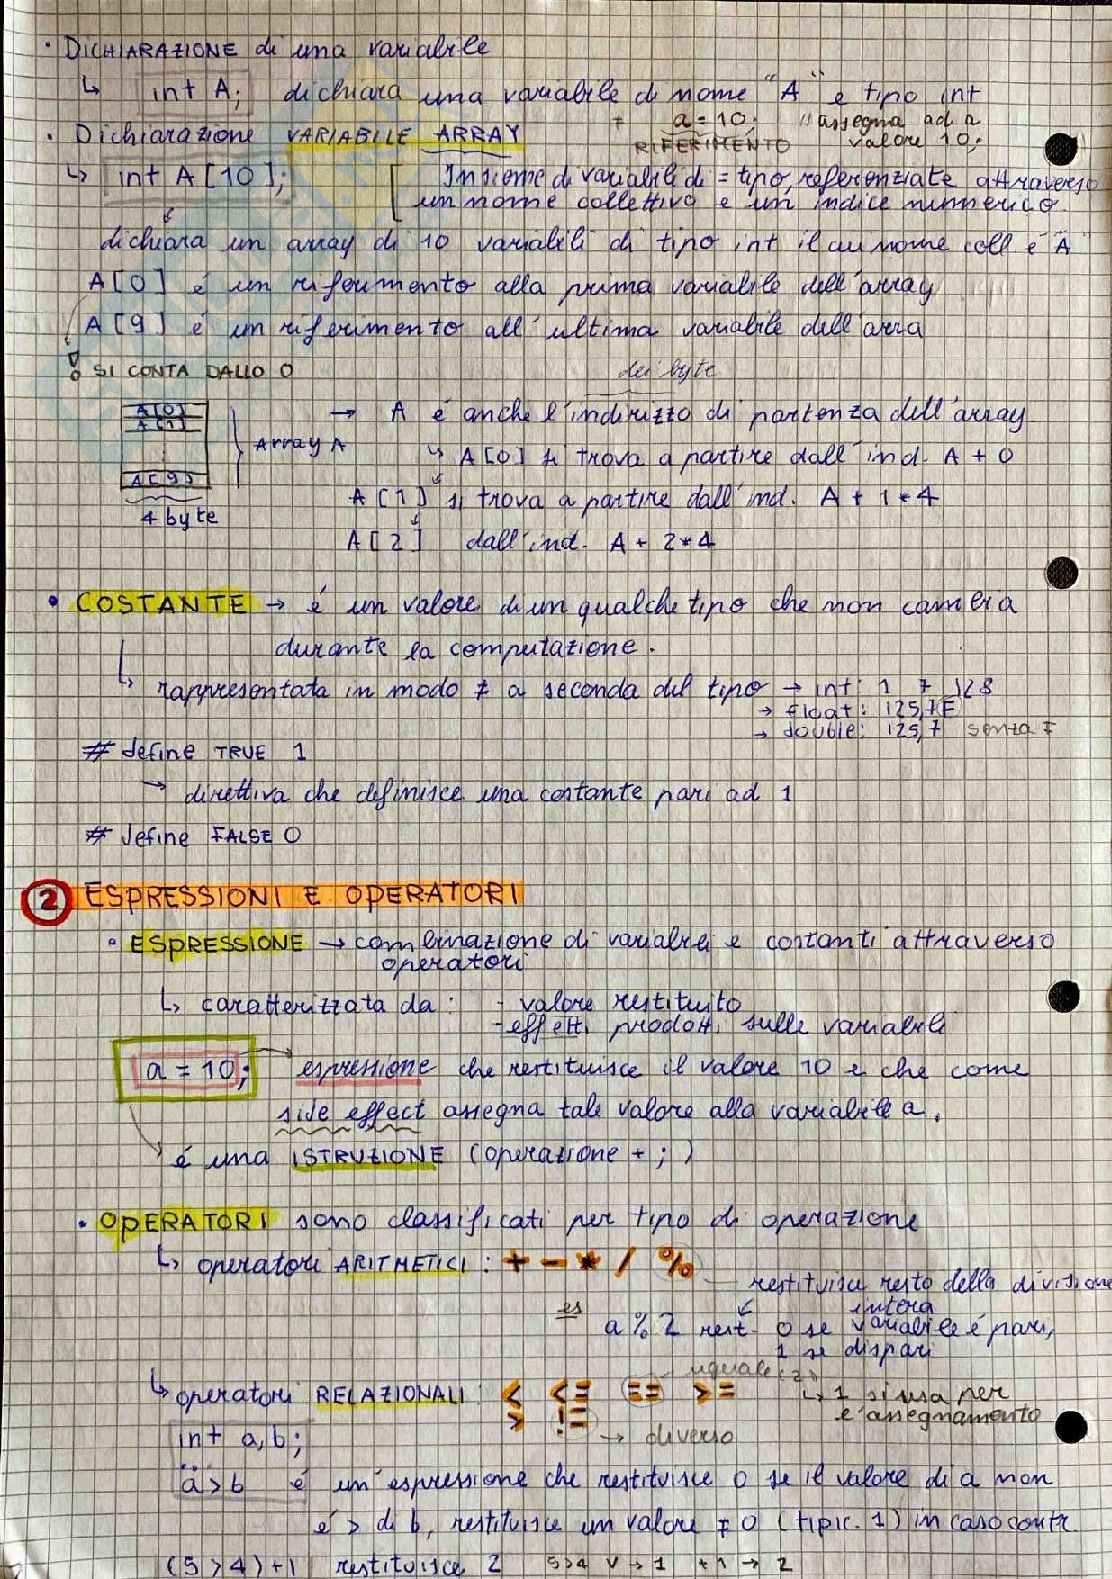 • DICHIARAZIONE di una variabile
↳ int A; dichiara una variabile di nome "A" e tipo int
+ a = 10; // assegna ad a valore 10;
RIFERIMENTO
• Dichiarazione VARIABILE ARRAY
↳ int A[10]; [ Insieme di variabili di = tipo, referenziate attraverso
un nome collettivo e un indice numerico.
dichiara un array di 10 variabili di tipo int il cui nome coll é "A"
A[0] é un riferimento alla prima variabile dell'array
A[9] é un riferimento all'ultima variabile dell'arra
! SI CONTA DALLO 0
dei byte
A[0]
A[1]
A[9]
4 byte
Array A
→ A é anche l'indirizzo di partenza dell'array
↳ A[0] si trova a partire dall'ind. A + 0
A[1] si trova a partire dall'ind. A + 1*4
A[2] dall'ind. A + 2*4
• COSTANTE → é un valore di un qualche tipo che non cambia
durante la computazione.
↳ rappresentata in modo ≠ a seconda del tipo → int: 1 7 128
→ float: 125,7F
→ double: 125,7 senza F
# define TRUE 1
→ direttiva che definisce una costante pari ad 1
# define FALSE 0
2 ESPRESSIONI E OPERATORI
• ESPRESSIONE → combinazione di variabili e costanti attraverso
operatori
↳ caratterizzata da: - valore restituito
- effetti prodotti sulle variabili
a = 10; → espressione che restituisce il valore 10 e che come
side effect assegna tale valore alla variabile a.
é una ISTRUZIONE (operazione + ;)
• OPERATORI sono classificati per tipo di operazione
↳ operatori ARITMETICI: + - * / %
restituisce resto della divisione
intera
es a % 2 rest. 0 se variabile é pari,
1 se dispari
uguale (2)
↳ operatori RELAZIONALI: < <= == >=
↳ 1 si usa per
l'assegnamento
> != → diverso
int a,b;
...
a > b é un'espressione che restituisce 0 se il valore di a non
é > di b, restituisce un valore ≠ 0 (tipic. 1) in caso contr.
(5 > 4) + 1 restituisce 2 5>4 V → 1 +1 → 2